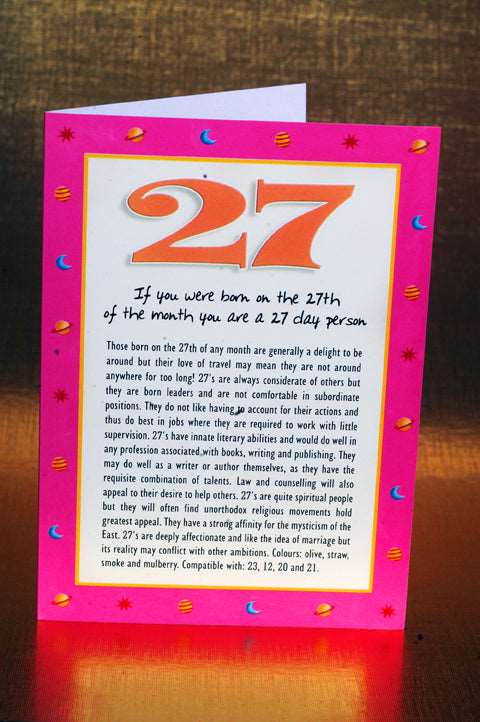 27
If you were born on the 27th
of the month you are a 27 day person
Those born on the 27th of any month are generally a delight to be
around but their love of travel may mean they are not around
anywhere for too long! 27's are always considerate of others but
they are born leaders and are not comfortable in subordinate
positions. They do not like having to account for their actions and
thus do best in jobs where they are required to work with little
supervision. 27's have innate literary abilities and would do well in
any profession associated with books, writing and publishing. They
may do well as a writer or author themselves, as they have the
requisite combination of talents. Law and counselling will also
appeal to their desire to help others. 27's are quite spiritual people
but they will often find unorthodox religious movements hold
greatest appeal. They have a strong affinity for the mysticism of the
East. 27's are deeply affectionate and like the idea of marriage but
its reality may conflict with other ambitions. Colours: olive, straw,
smoke and mulberry. Compatible with: 23, 12, 20 and 21.